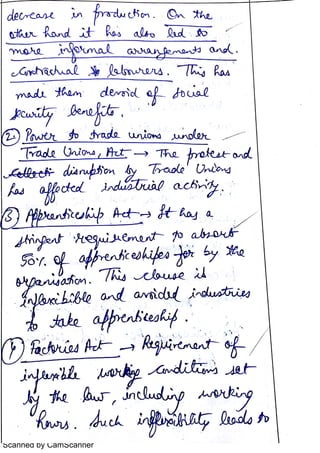 decrease in production. On the
other hand it has also led to
more informal arrangements and
contractual labourers. This has
made them devoid of social
security benefits.
② Power to trade unions under
Trade Unions, Act → The protest and
disruption by Trade Unions
has affected industrial activity.
③ Apprenticeship Act → It has a
stringent requirement to absorb
50% of apprenticeships for by the
organisation. This clause is
inflexibible and avoided industries
to take apprenticeship.
④ Factories Act → Requirement of
inflexible working conditions set
by the law, including working
hours. Such inflexibility leads to
Scanned by CamScanner